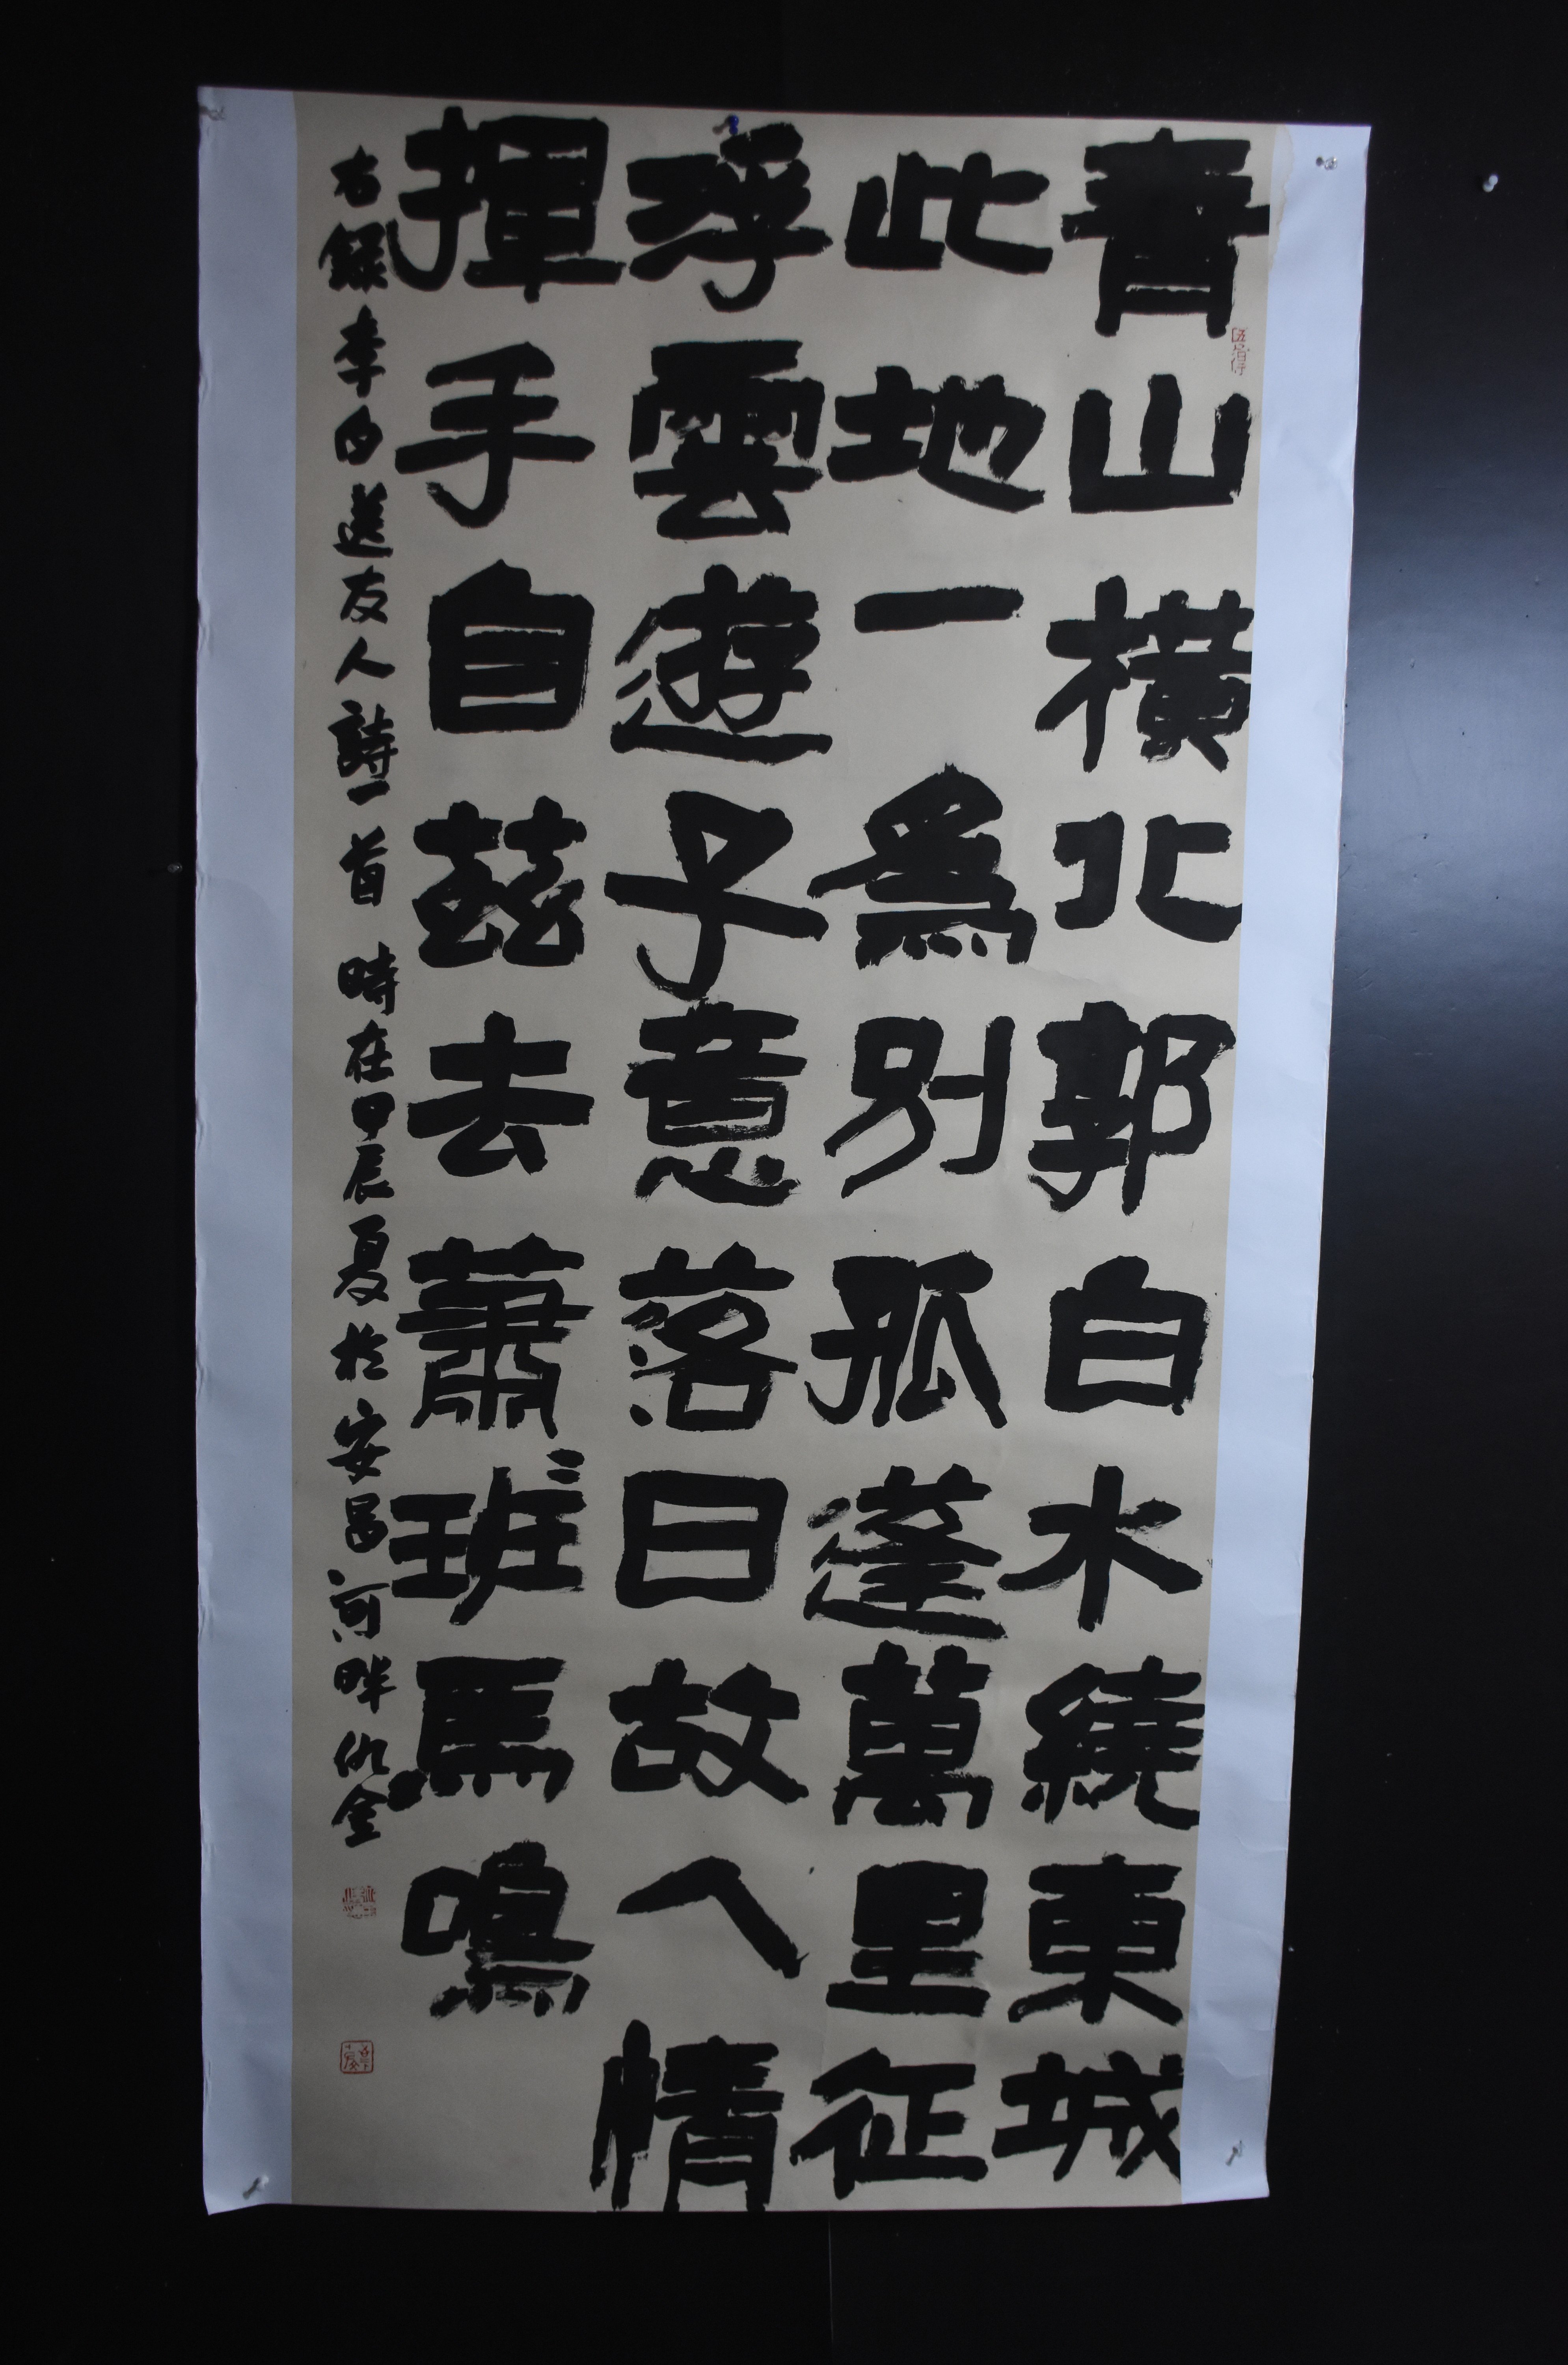 青山橫北郭白水繞東城
此地一爲別孤蓬萬里征
浮雲遊子意落日故人情
揮手自茲去蕭〻班馬鳴
右錄李白送友人詩一首 時在甲辰夏於安昌河畔 金